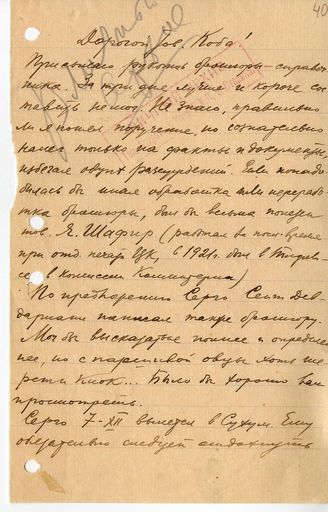 40
Дорогой тов. Коба!
Присылаю рукопись брошюры-справоч
ника. За три дня лучше и короче сос
тавить не мог. Не знаю, правильно
ли я понял поручение, но сознательно
налег только на факты и документы,
избегая общих рассуждений. Если понадо
билась бы иная обработка или перерабо
тка брошюры, был бы весьма полезен
тов. Я. Шафир (работал в посл. время
при отд. печати ЦК, в 1921 г. был в
в комиссии Коминтерна)
По предложению Серго Сент. Дев
дариани написал также брошюру.
Мог бы высказаться полнее и определен
нее, но с паршивой овцы хоть ше
рсти клок... Было бы хорошо Вам
просмотреть.
Серго 7-XII выедет в Сухум. Ему
обязательно следует отдохнуть